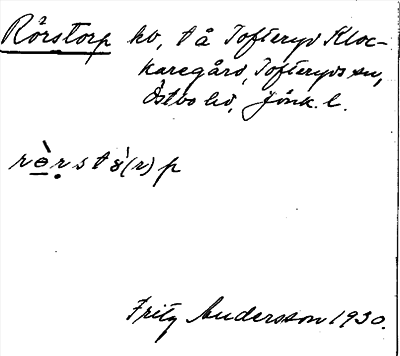 Rörstorp kv, t å Tofteryd Kloc-
karegård, Tofteryds sn,
Östbo hd, Jönk. l.
Fritz Andersson 1930.